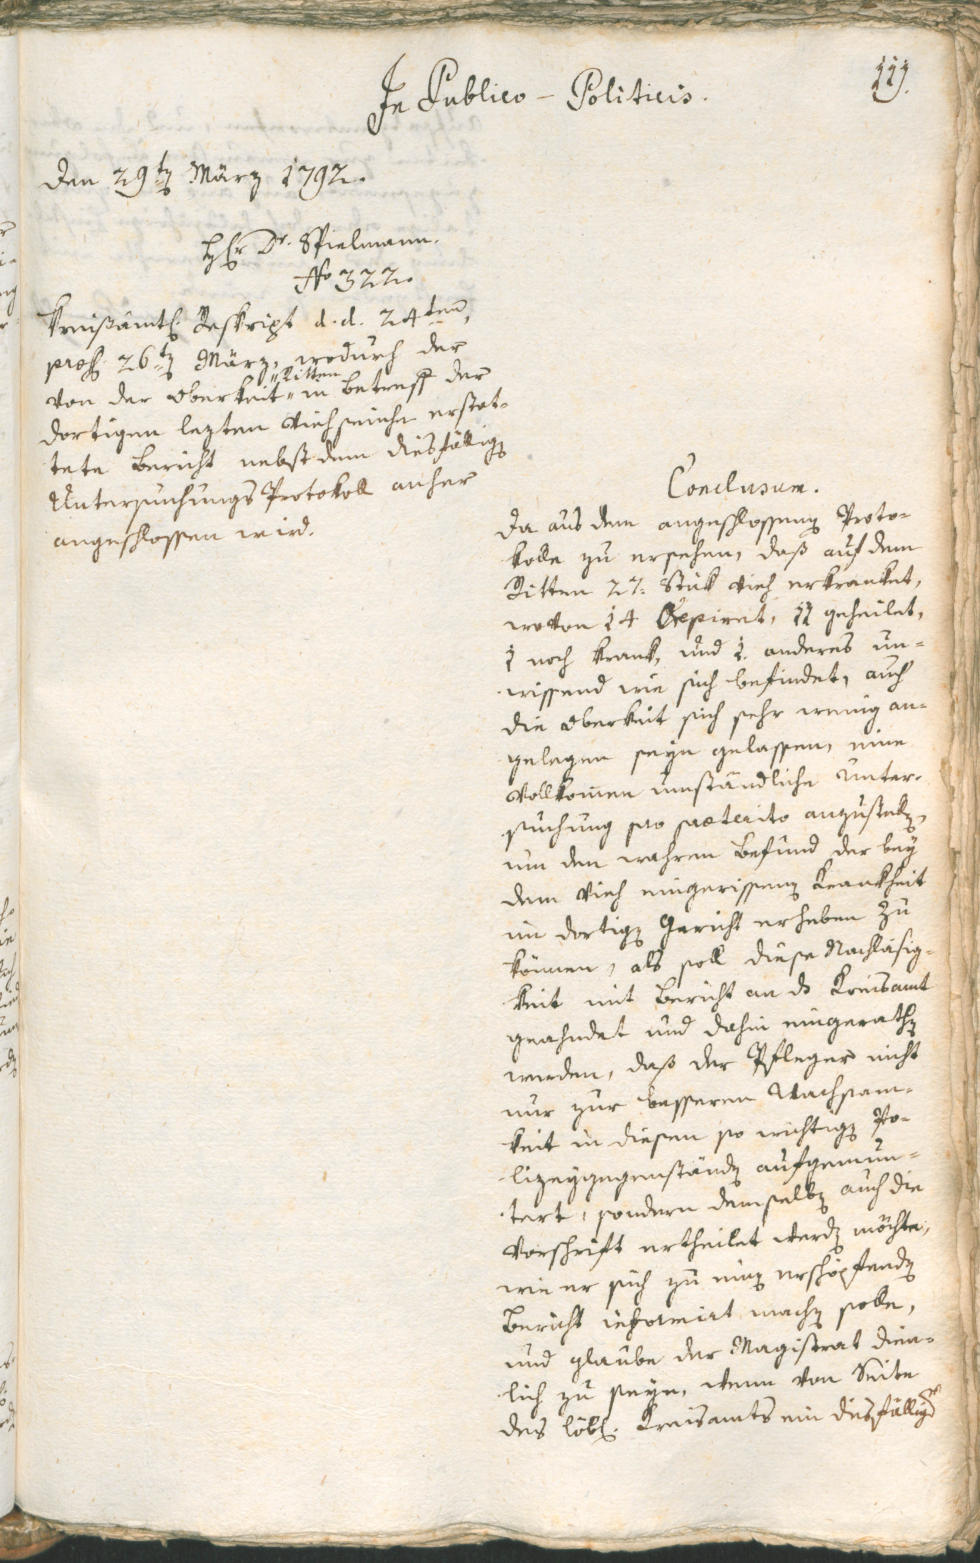 In Publico - Politicis.
119.
Den 29t März 1792.
H Hr Dr. Spielmann.
No 322.
Kreißämtl. Reskript d. d. 24ten,
praes 26t März, wodurch der
von der Oberkeit Ritten in Betreff der
dortigen lezten Viehseuche erstat-
tete Bericht nebst dem diesfällig
Untersuchungs Protokoll anher
angeschlossen wird.
Conclusum.
Da aus dem angeschlossenen Proto-
kolle zu ersehen, daß auf dem
Ritten 27. Stük Vieh erkranket,
wovon 14 Crepiret, 11 geheilet,
1 noch krank, und 1. anderes un-
wissend wie sich befindet, auch
die Oberkeit sich sehr wenig an-
gelegen seyn gelassen, eine
vollkomen umständliche Unter-
suchung pro praeterito anzustelln,
um den wahren Befund der bey
dem Vieh eingerissenen Krankheit
im dortign Gericht erheben zu
können, als soll diese Nachläsig-
keit mit Bericht an ds Kreisamt
geahndet und dahin eingerathn
werden, daß der Pfleger nicht
nur zur besseren Wachsam-
keit in diesen so wichtign Po-
lizeygegenständn aufgemun-
tert, sondern demselbn auch die
Vorschrift ertheilet werdn möchte,
wie er sich zu einn erschöpfendn
Bericht informirt machn solle,
und glaube der Magistrat dien-
lich zu seyn, wenn von Seite
des löbl. Kreisamts ein diesfällig